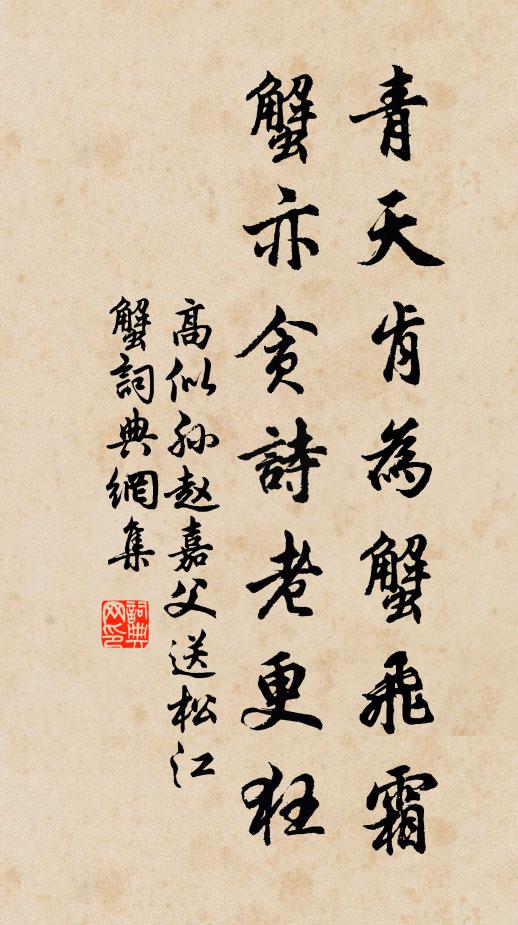 青天肯為蟹飛霜
蟹亦貪詩老更狂
高似孫赵嘉父送松江
蟹詞典網集
詞典网印